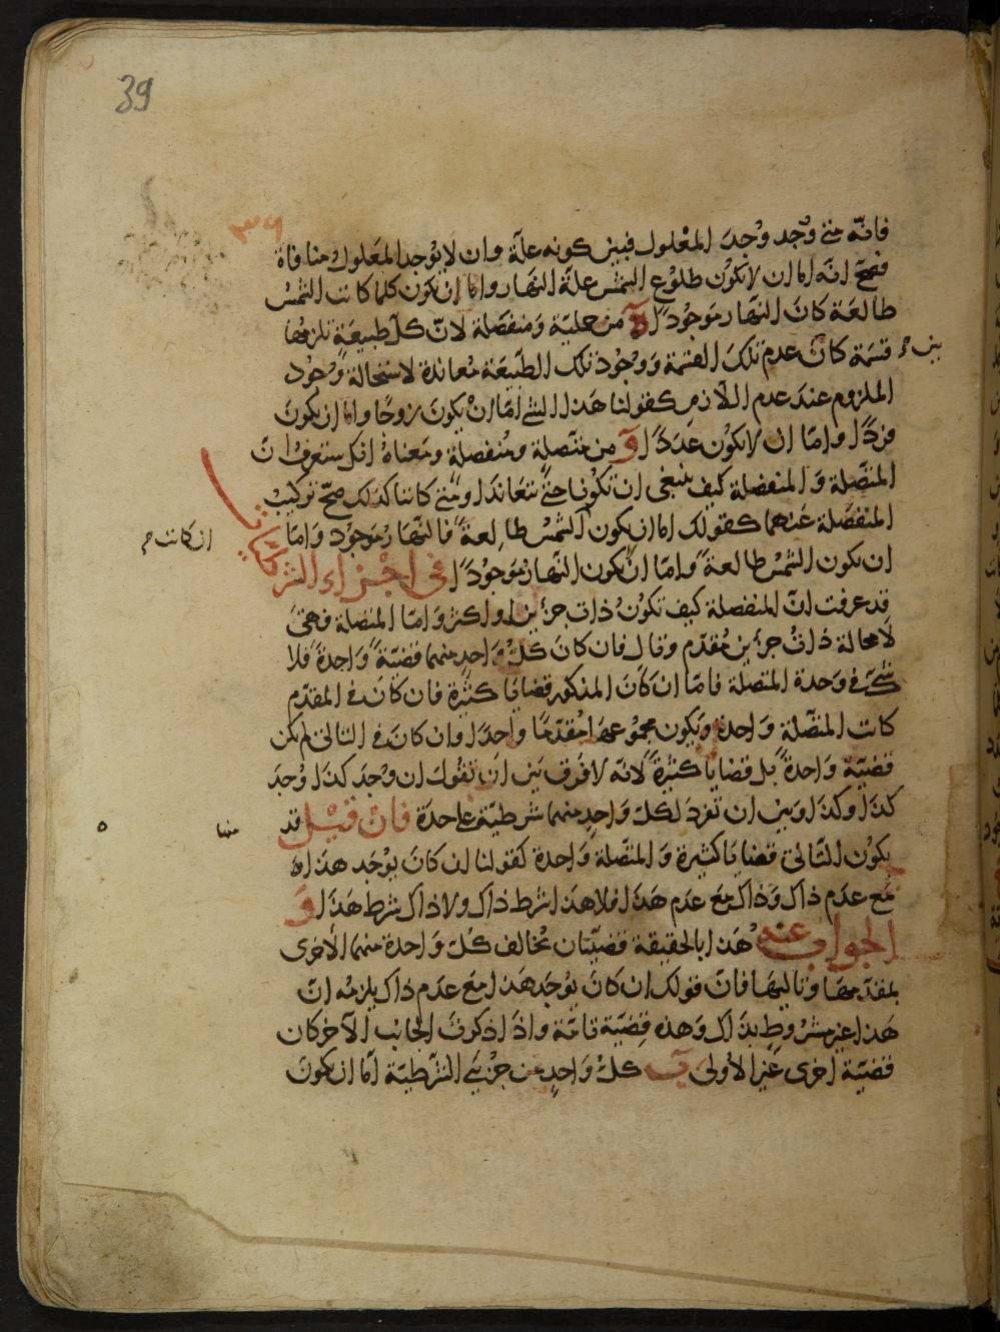 39
٣٩
فانه متى وُجد وُجدَ المعْلول فبين كونه علّة وان لا يوُجد المعَلول منافاة
فصحّ انّه اما ان لا يكوُن طلوُع الشمْس علّة النّهَار واما ان يكون كلما كانت الشمْس
طالعَة كانَ النهّار موَجوُدًا ه من حمليّة وَمنفصَلة لانّ كلّ طبيعَة تلزمُها
قسْمَة كانَ عدم تلكَ القسْمة وَوجُود تلك الطّبيعَة مُعاندة لاستحالة وُجُود
بين
الملزوم عندَ عدم اللّازم كقولنا هَذا الشئ امّا انْ يكونَ زوجًا واما ان يكونَ
فردًا وامّا ان لا يكوُن عَدَدًا وَ من متّصلةٍ ومُنفصلةٍ ومَعناهُ انك ستعرفُ انّ
المتّصَلة وَالمنفصَلة كيف ينبغى ان تكوُنا حتّى تتعَاندَا ومتى كانتا كذلك صحّ تركيبُ
المنفصَلة عَنهما كقولك اما ان يكون الشمْس طالعةً فالنّهَارُ موَجوُد وَامّا
ان كانت
ان يكون الشمْسُ طالعةً وامّا انْ يكون النهَارُ موَجُودًا فى اجْزاء الشرطيّات
قد عرفت انّ المنفصلة كيف تكوُنُ ذات جزئين او اكثر وَامّا المتصَلة فهىَ
لا محالة ذاتُ جزئين مُقدّم وتال فان كانَ كلُّ وَاحدٍ منهما قضيّةً وَاحدةً فلا
شكّ فى وَحدة المتصَلة فامّا ان كَانَ المذكور قضايا كثيرة فان كَانَ فى المقدّم
كانت المتصّلة وَاحدة ويَكون مجموُعهَا مُقدّمًا واحدًا وان كانَ فى التالى لم يكن
قضيّة وَاحدةً بل قضايا كثيرةً لانّه لا فرق بَين ان تقوُل ان وُجدَ كذا وُجدَ
كذا وكذا وَبين ان تفردَ لكلّ وَاحدٍ منهما شرطيّة على حدَة فانْ قيْل قد
منها
يكوُن التّالىَ قضَايَا كثيرة وَالمتّصَلة وَاحدة كقولنا ان كانَ يوُجَد هذا
مَع عدَم ذاك وَذاك مَع عدَم هذَا فلا هذَا شرط ذاك ولا ذاك شرط هذا و
الجوابُ عنه هَذا بالحَقيقة قضيّتان تُخالف كلّ وَاحدة منهما الأخرى
بمقدّمهَا وتاليهَا فانّ قولك ان كانَ يوُجَد هَذا مَع عدَم ذاك يلزمُه انّ
هَذا غيرمشرُوطٍ بذَاك وَهذه قضِيّة تامّة واذَا ذكرتَ الجانبَ الآخر كان
قضيّة اخرى غير الأولى كلّ وَاحدٍ من جزئى الشّرطيّة امّا ان يكونَ